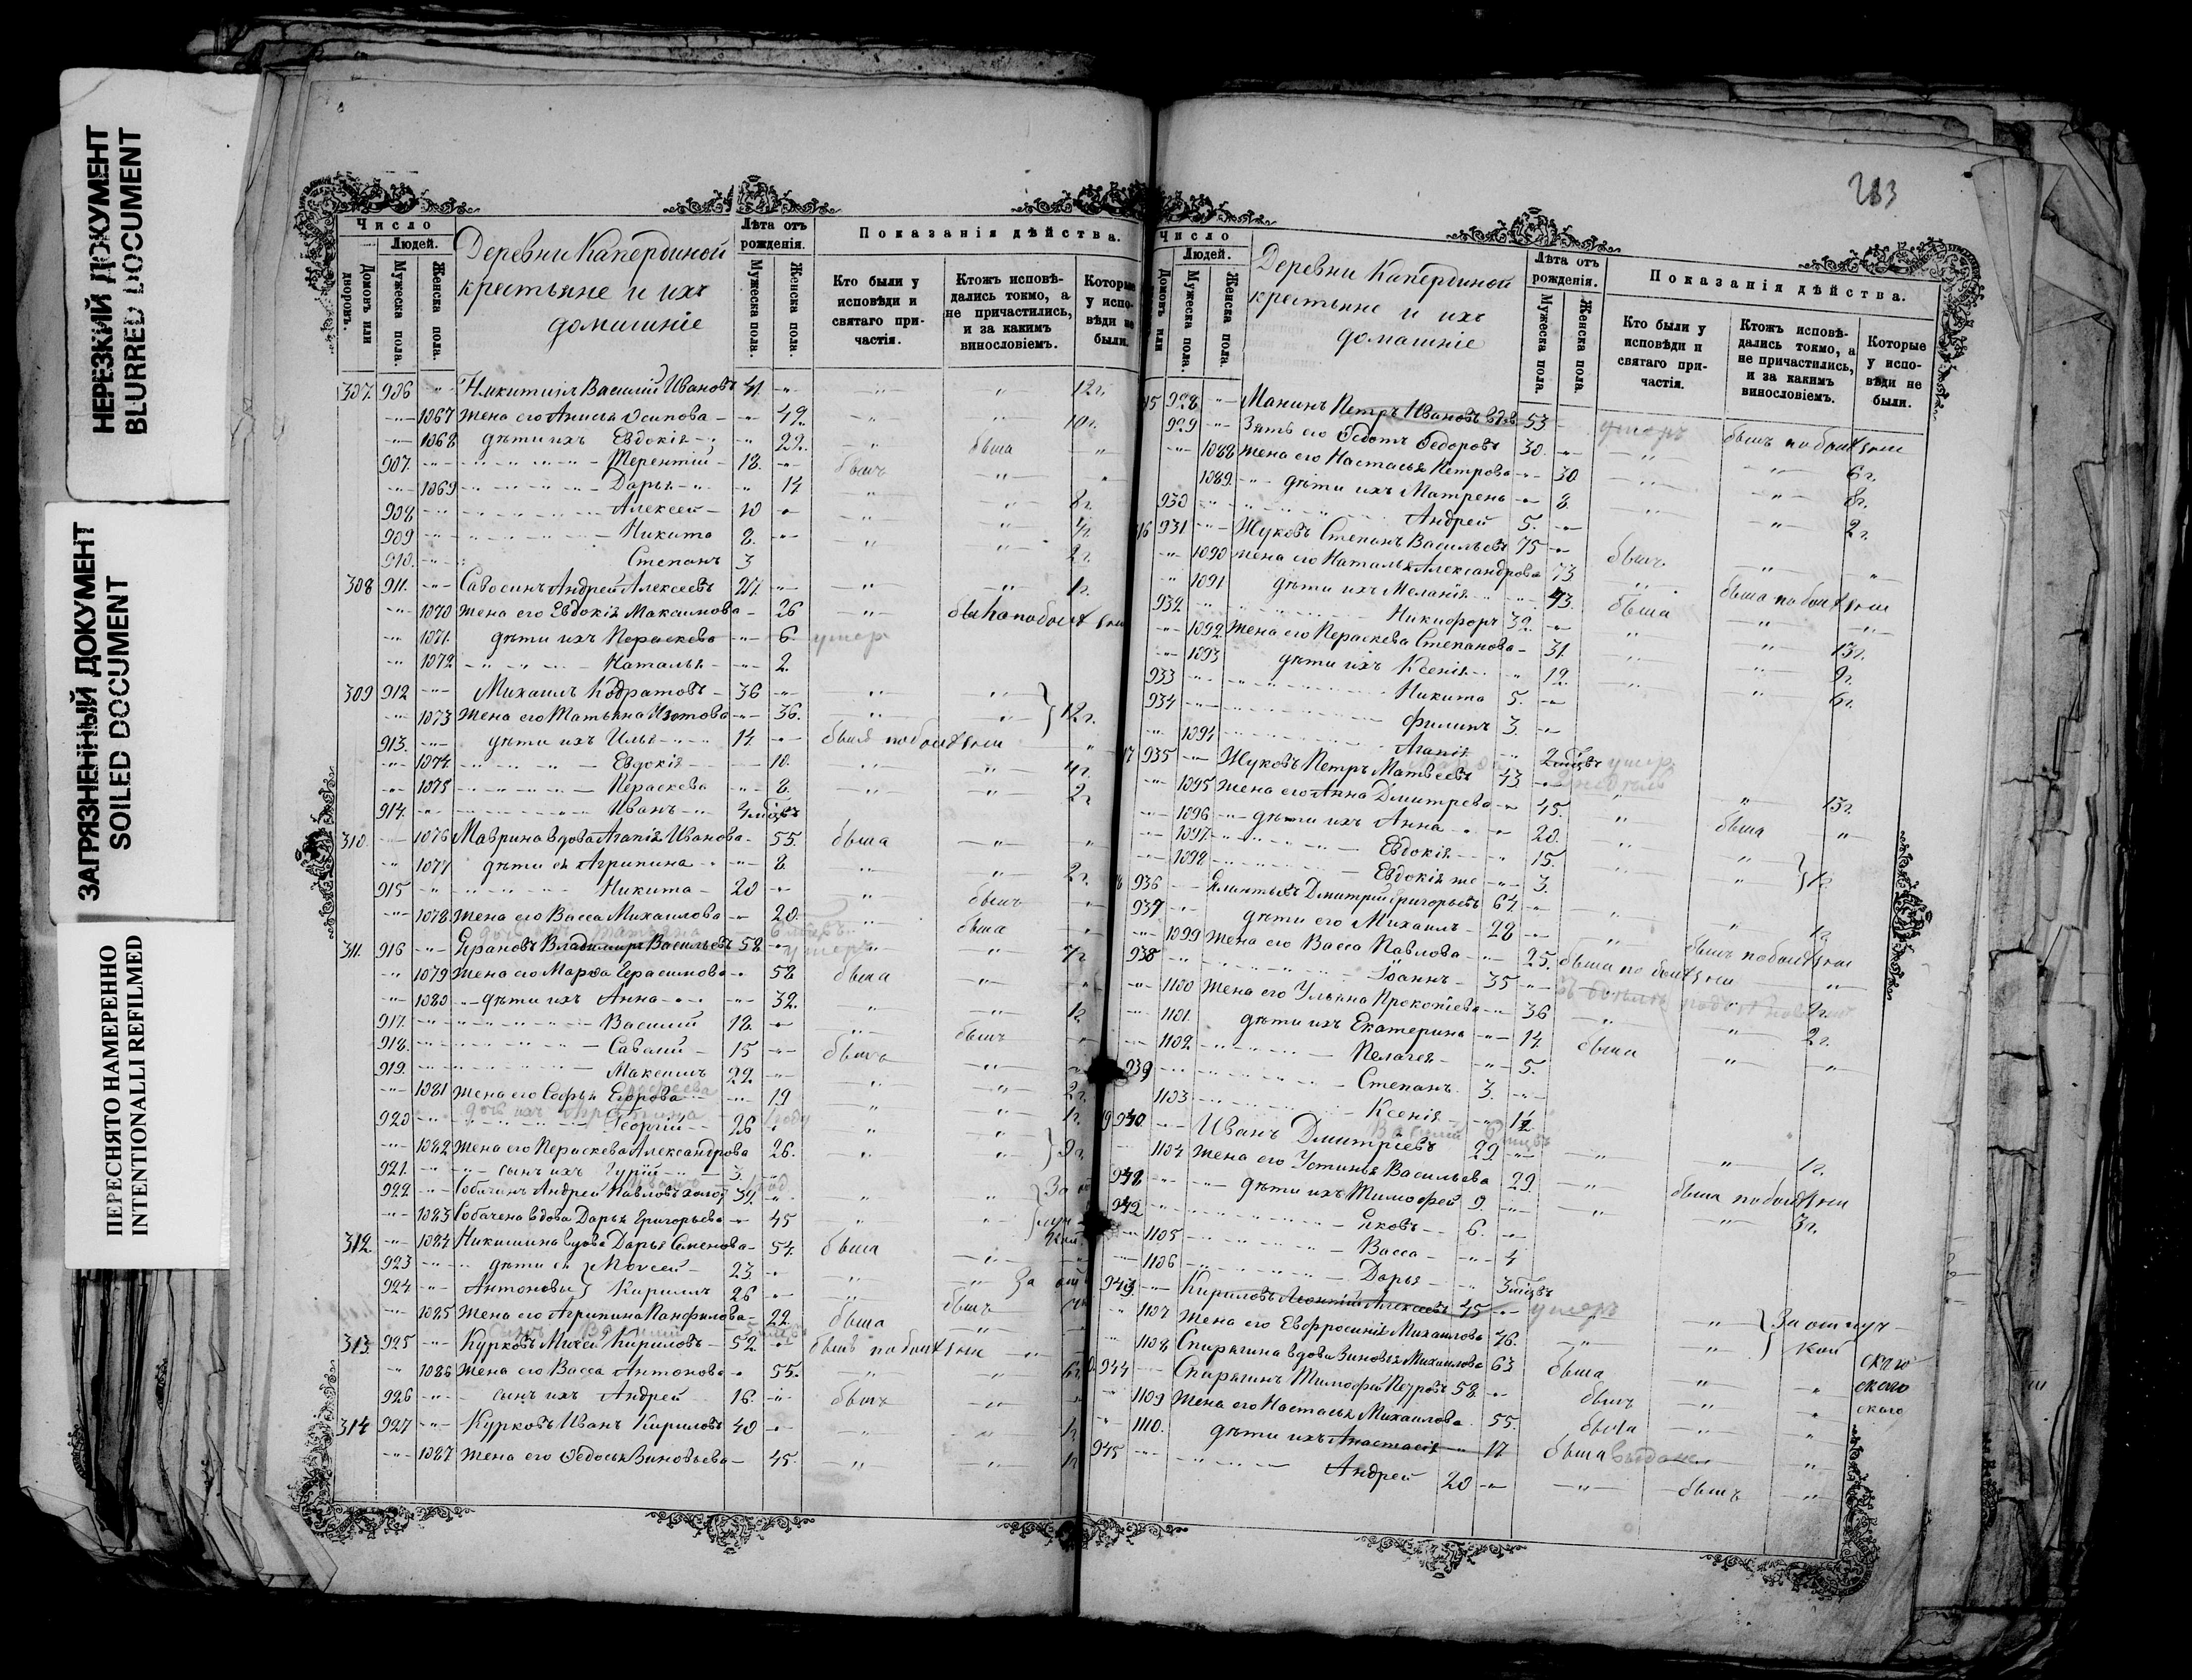 НЕРЕЗКИЙ ДОКУМЕНТ
BLURRED DOCUMENT
ЗАГРЯЗНЕННЫЙ ДОКУМЕНТ
SOILED DOCUMENT
ПЕРЕСНЯТО НАМЕРЕННО
INTENTIONALLI REFILMED
Число
Людей.
Домовъ или дворовъ.
Мужеска пола.
Женска пола.
Деревни Капердиной
крестьяне и ихъ
домашніе
Лѣта отъ рожденія.
Мужеска пола.
Женска пола.
Показанія дѣйства.
Кто были у исповѣди и святаго причастія.
Ктожъ исповѣдались токмо, а не причастились, и за какимъ винословіемъ.
Которые у исповѣди не были.
307. 906 Никитинъ Василій Ивановъ 41. 12 г.
1067 Жена его Анисья Осипова 49. 10 г.
1068 дѣти ихъ Евдокія 22. была
907. Терентій 18. былъ
1069 Дарья 14
908 Алексей 10 8 г.
909 Никита 8. 4 г.
910. Степанъ 3 2 г.
308 911. Савосинъ Андрей Алексеевъ 27. 1 г.
1070 Жена его Евдокія Максимова 26
1071. дѣти ихъ Пераскева 6 умер
1072 Наталья 2.
309 912 Михаилъ Кодратовъ 36
1073 Жена его Татьяна Изотова 36. 12 г.
913. дѣти ихъ Илья 14.
1074 Евдокія 10. 4 г.
1075 Пераскева 8. 2 г
914. Иванъ 4 мѣсцъ
310. 1076 Маврина вдова Агапія Иванова 55. была
1077 дѣти ея Агрипина 8. 2 г.
915 Никита 20 былъ
1078. Жена его Васса Михаилова 20. была
311. 916 Ерановъ Владимиръ Васильевъ 58 умеръ
1079 Жена его Марѳа Герасимова 58 была
1080 дѣти ихъ Анна 32.
917. Василій 18. былъ
918. Савелій 15 былъ
919. Максимъ 22. 2 г.
1081 Жена его Софья Егорова 19 1 г.
920 Георгій 26
1082 Жена его Пераскева Александрова 26. 9 г.
921. сынъ ихъ Гурій 3.
922. Собачинъ Андрей Павловъ холос 39.
1083 Собачена вдова Дарья Григорьева 45
312 1084 Никишина вдова Дарья Семенова 54. была
923 дѣти ея Моисей 23
924 Антоновы Кирилъ 26 былъ
1085 Жена его Агрипина Панфилова 22 была
313. 925 Курковъ Михей Кириловъ 52.
1086 Жена его Васса Антонова 55. 6 г
926 сынъ ихъ Андрей 16. былъ
314 927 Курковъ Иванъ Кириловъ 40
1087 Жена его Ѳедосья Виновьева 45.
283
Число
Людей.
Домовъ или
Мужеска пола.
Женска пола.
Деревни Капердиной
крестьяне и ихъ
домашніе
Лѣта отъ рожденія.
Мужеска пола.
Женска пола.
Показанія дѣйства.
Кто были у исповѣди и святаго причастія.
Ктожъ исповѣдались токмо, а не причастились, и за какимъ винословіемъ.
Которые у исповѣди не были.
15 928 Манинъ Петръ Ивановъ вдов 53 умеръ
929 Зять его Ѳедотъ Ѳедоровъ 30.
1088 Жена его Настасья Петрова 30 6 г.
1089. дѣти ихъ Матрена 8. 8 г.
930 Андрей 5. 2 г.
16 931 Жуковъ Степанъ Васильевъ 75 былъ
1090 Жена его Наталья Александрова 73
1091 дѣти ихъ Меланія 43. была
932. Никифоръ 32.
1092 Жена его Пераскева Степанова 31. 13 г.
1093 дѣти ихъ Ксенія 12. 9 г.
933 Никита 5. 6 г.
934 Филипъ 3.
1094 Агапія 2 мѣсцъ умер
17 935 Жуковъ Петръ Матвеевъ 43
1095 Жена его Анна Дмитрева 45. 15 г.
1096 дѣти ихъ Анна 20. была
1097. Евдокія 15.
1098 Евдокія же 3.
936 Дмитрій Григорьевъ 64.
937 дѣти его Михаилъ 28
1099 Жена его Васса Павлова 25.
938 Іоаннъ 35
1100 Жена его Ульяна Прокопіева 36 2 г.
1101. дѣти ихъ Екатерина 14 была 2 г.
1102 Пелагея 5.
939 Степанъ 3.
1103 Ксенія
940 Иванъ Дмитріевъ 29.
1104 Жена его Устинья Васильева 29. 1 г.
дѣти ихъ Тимофей 9.
942 Яковъ 6. 3 г.
1105 Васса 4
1106 Дарья 3 мѣсцъ
943 Кириловъ Леонтій Алексеевъ 45 умеръ
1107 Жена его Евфросинія Михаилова 46.
1108 Спирягина вдова Зиновья Михаилова 63 была
944 Спирягинъ Тимофей Петровъ 58 былъ
1109 Жена его Настасья Михаилова 55. была
1110. дѣти ихъ Анастасія 17 была выдана
945 Андрей 20 былъ